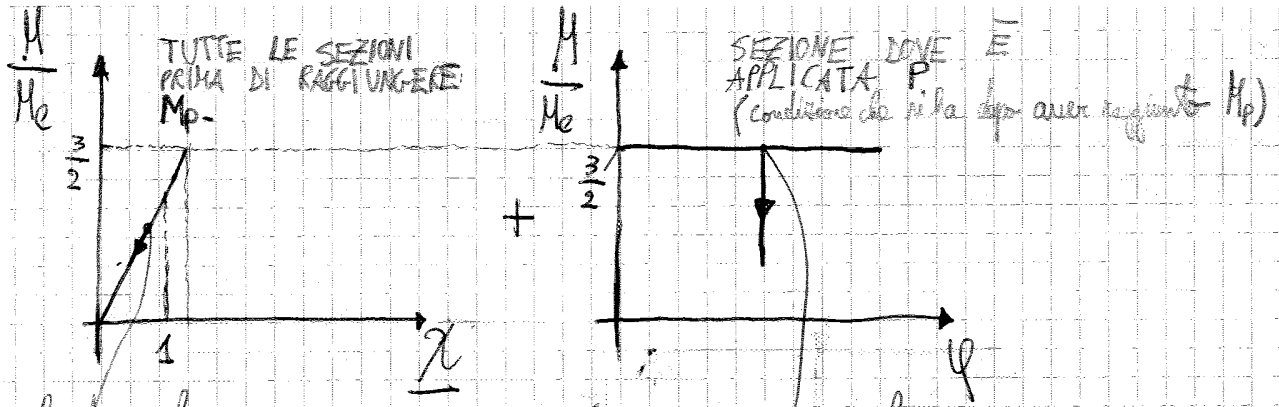 M
Me
TUTTE LE SEZIONI
PRIMA DI RAGGIUNGERE
Mp.
3
2
1
χ
+
M
Me
SEZIONE DOVE È
APPLICATA P.
(condizione che si ha dopo aver raggiunto Mp)
3
2
φ